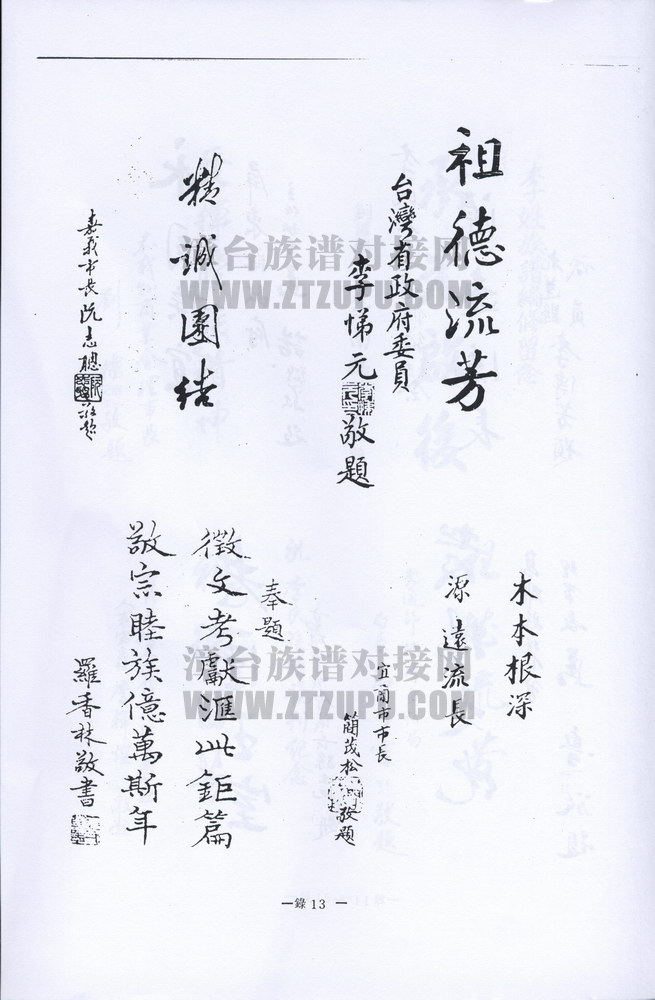 祖德流芳
台灣省政府委員
李悌元
敬題
精誠團结
嘉義市長阮志聰
敬題
木本根深
源遠流長
宜蘭市市長
簡茂松
敬題
奉題
徵文考獻滙此鉅篇
敬宗睦族億萬斯年
羅香林敬書
台族谱对接网
WWW.ZTZUPU.COM
台族谱对接网
WWW.ZTZUPU.COM
—錄 13 —